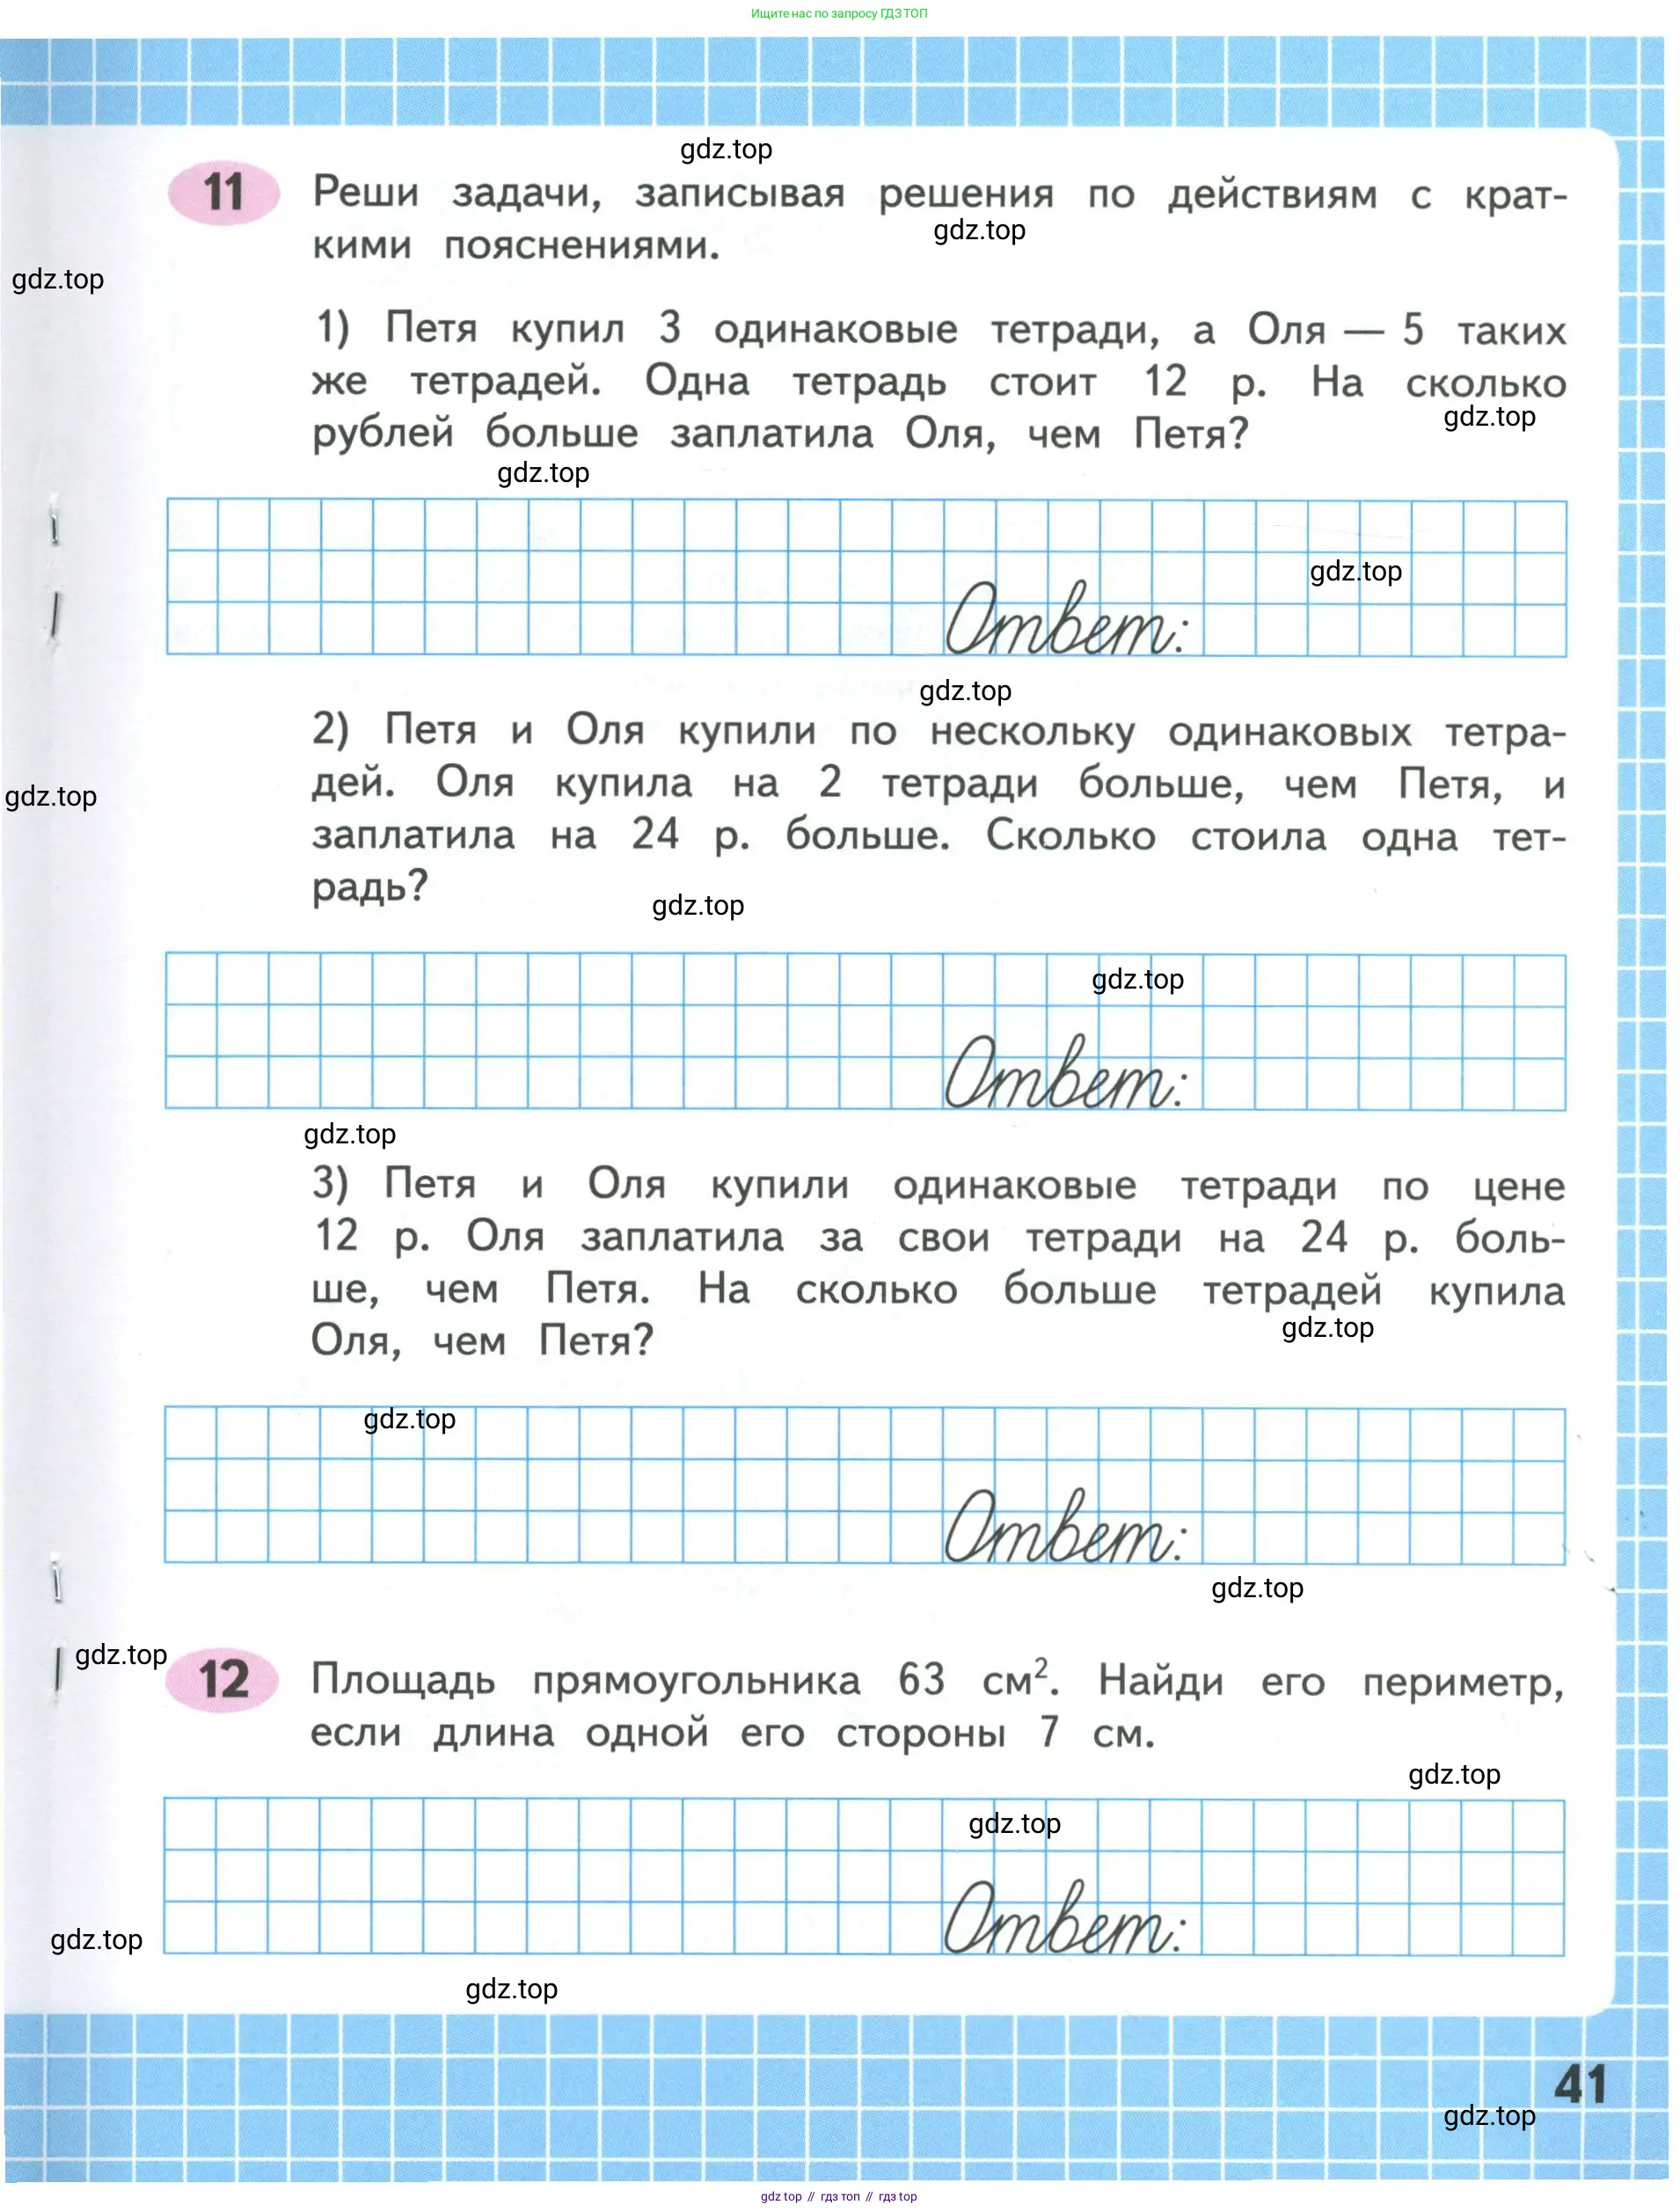 Ищите нас по запросу ГДЗ ТОП
gdz.top
11 Реши задачи, записывая решения по действиям с крат-
gdz.top
кими пояснениями.
gdz.top
1) Петя купил 3 одинаковые тетради, а Оля — 5 таких
же тетрадей. Одна тетрадь стоит 12 р. На сколько
gdz.top
рублей больше заплатила Оля, чем Петя?
gdz.top
gdz.top
Ответ:
gdz.top
2) Петя и Оля купили по нескольку одинаковых тетра-
дей. Оля купила на 2 тетради больше, чем Петя, и
gdz.top
заплатила на 24 р. больше. Сколько стоила одна тет-
радь?
gdz.top
gdz.top
Ответ:
gdz.top
3) Петя и Оля купили одинаковые тетради по цене
12 р. Оля заплатила за свои тетради на 24 р. боль-
ше, чем Петя. На сколько больше тетрадей купила
gdz.top
Оля, чем Петя?
gdz.top
Ответ:
gdz.top
gdz.top
12 Площадь прямоугольника 63 см². Найди его периметр,
если длина одной его стороны 7 см.
gdz.top
gdz.top
Ответ:
gdz.top
gdz.top
41
gdz.top
gdz top // гдз топ // гдз top